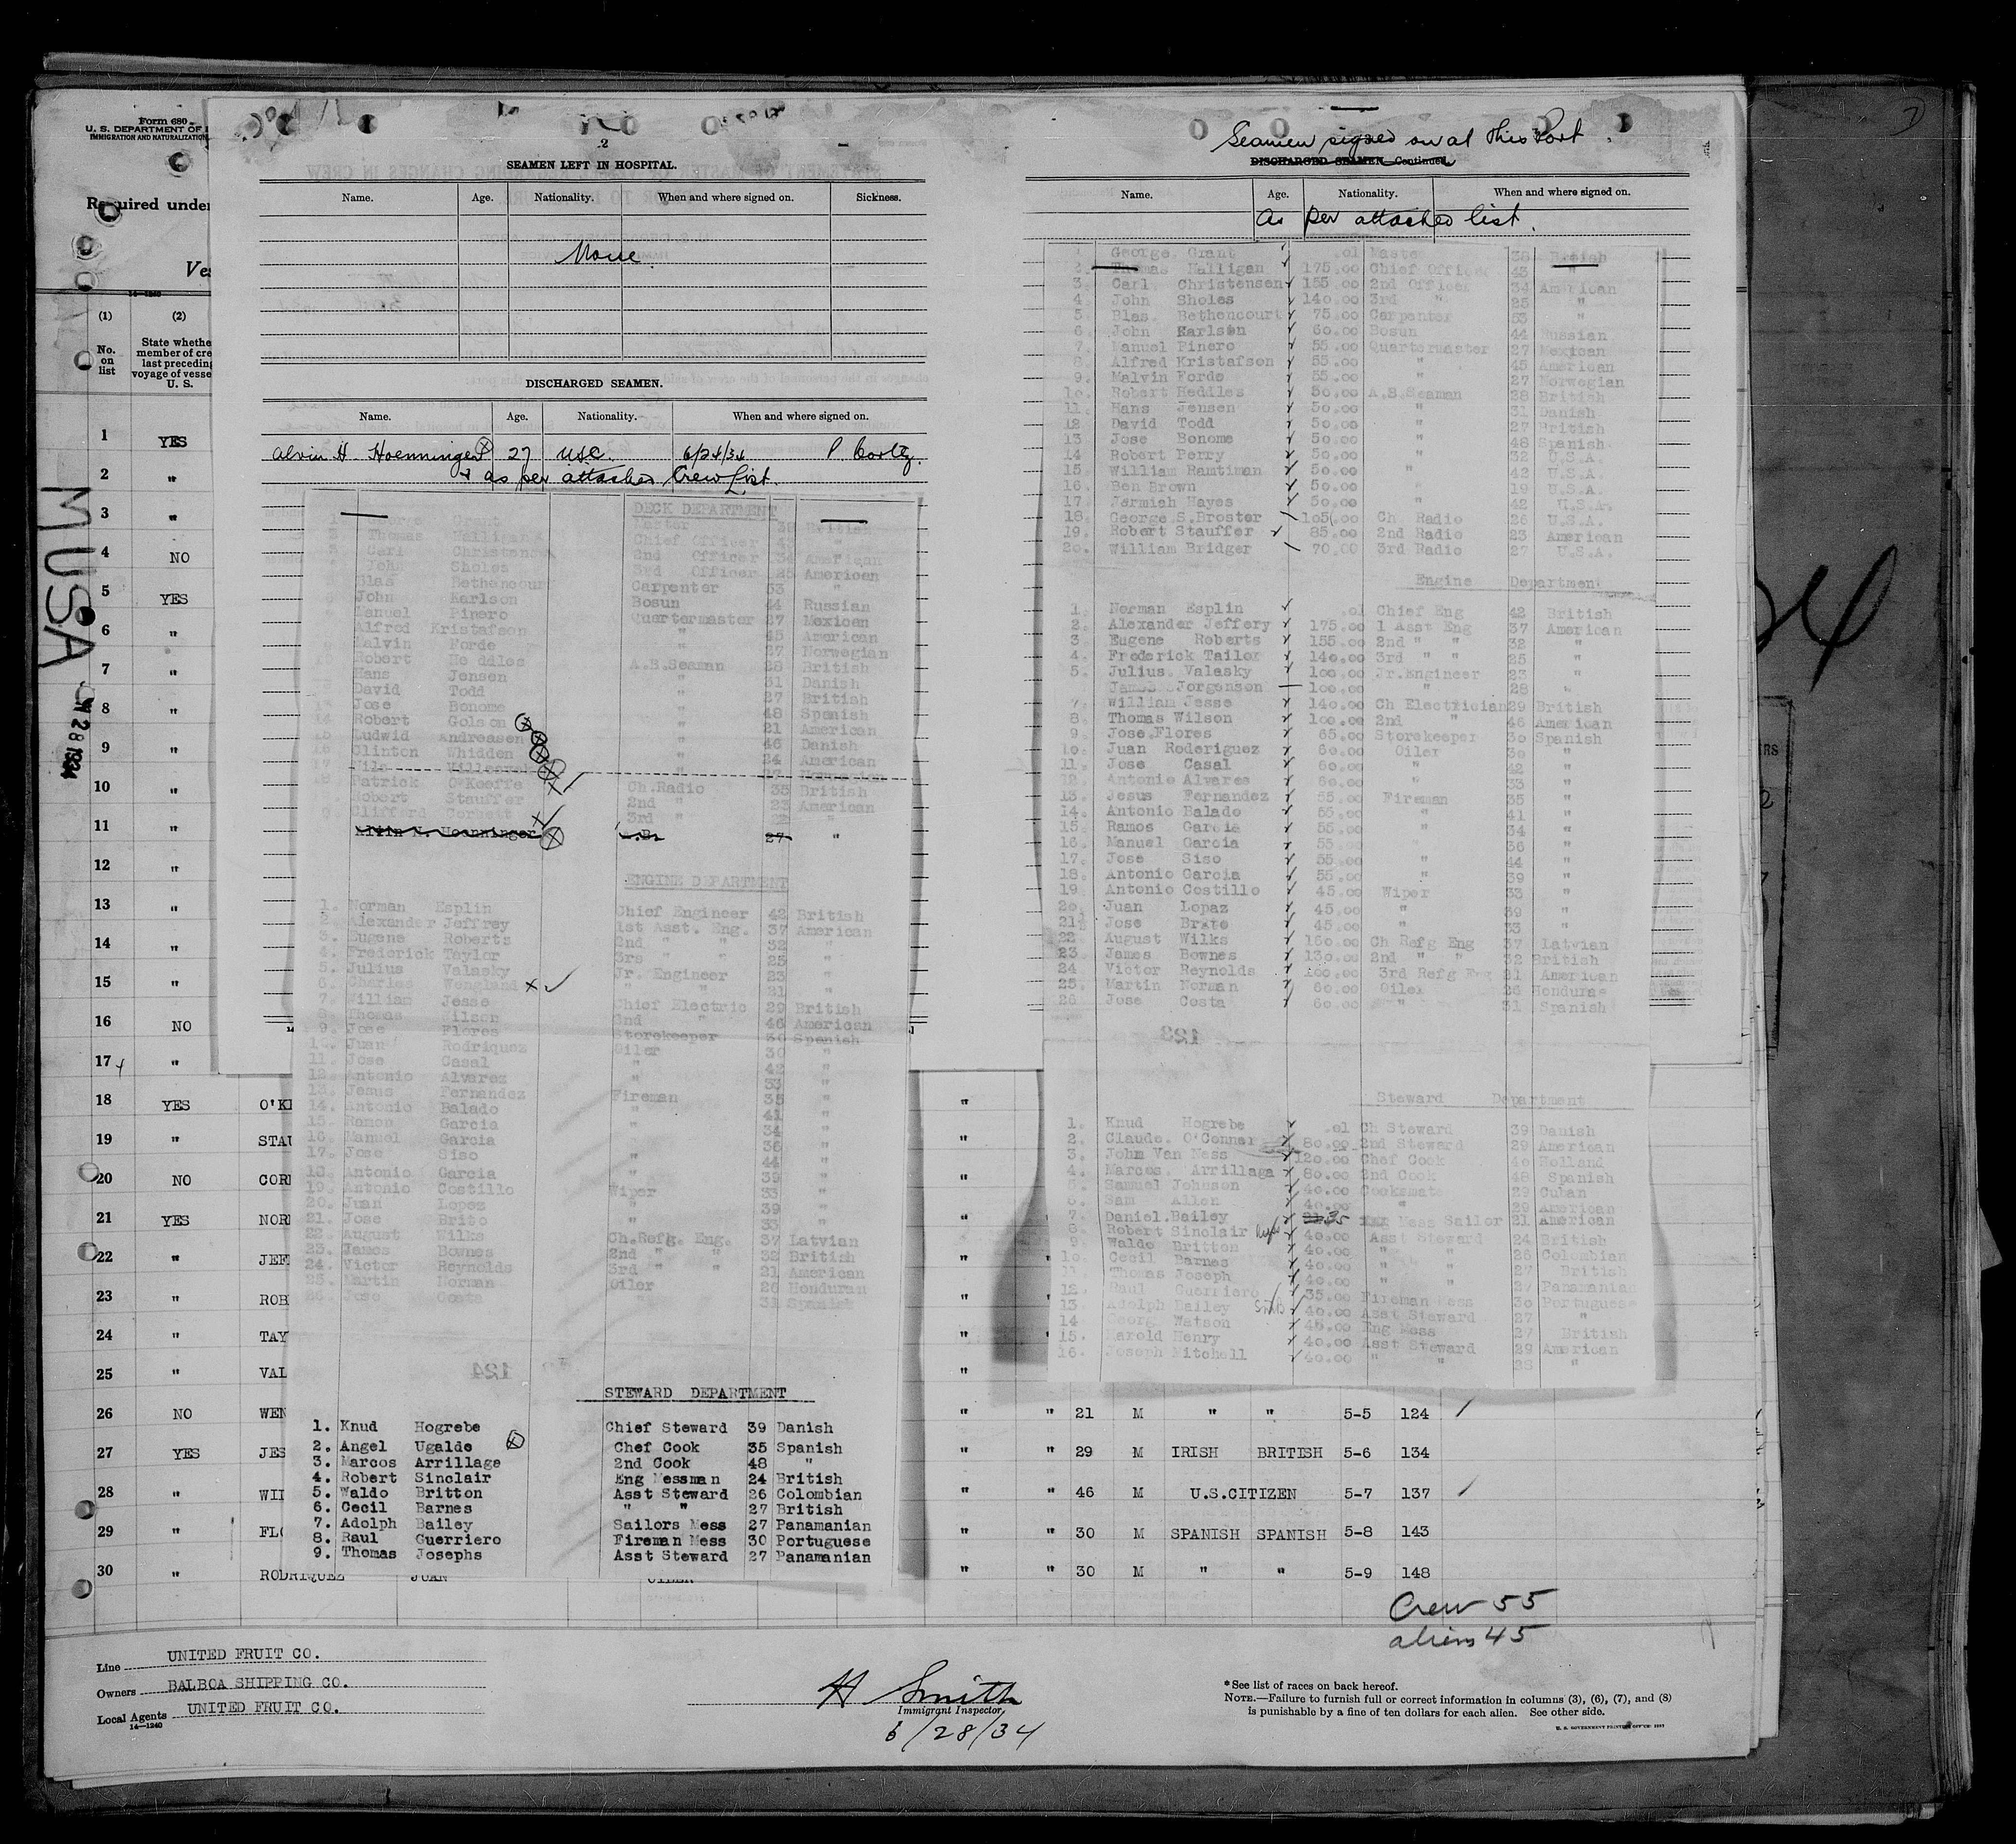 Form 680
U. S. DEPARTMENT OF
IMMIGRATION AND NATURALIZATION
Required under
Ves
14—1240
(1) (2)
No. on list
State whethe
member of cre
last preceding
voyage of vesse
U. S.
1 YES
2 "
3 "
4 NO
5 YES
6 "
7 "
8 "
9 "
10 "
11 "
12 "
13 "
14 "
15 "
16 NO
17 "
18 YES O'KE
19 " STAU
20 NO COR
21 YES NOR
22 " JEF
23 " ROB
24 " TAY
25 " VAL
26 NO WEN
27 YES JES
28 " WIL
29 " FLO
30 " RODRIQUEZ JUAN OILER
MUSA
JUN 28 1934
2
SEAMEN LEFT IN HOSPITAL.
Name. Age. Nationality. When and where signed on. Sickness.
None
DISCHARGED SEAMEN.
Name. Age. Nationality. When and where signed on.
Alvin H Hoenninger 27 USC. 6/24/34 P. Cortez.
+ as per attached Crew List.
DECK DEPARTMENT
1. George Grant Master 38 British
2. Thomas Halligan Chief Officer 43 "
3. Carl Christensen 2nd Officer 34 American
John Sholes 3rd Officer 25 American
Blas Bethencourt Carpenter 53 "
John Karlson Bosun 44 Russian
Manuel Pinero Quartermaster 27 Mexican
Alfred Kristafson " 45 American
Malvin Forde " 27 Norwegian
Robert Heddles A.B.Seaman 28 British
Hans Jensen " 31 Danish
David Todd " 27 British
Jose Bonome " 48 Spanish
14. Robert Golson " 21 American
15 Ludwid Andreasen " 46 Danish
16. Clinton Whidden " 24 American
Norwegian
Patrick O'Keeffe Ch.Radio 35 British
Robert Stauffer 2nd " 23 American
Clifford Corbett 3rd " 22 "
Alvin H. Hoenninger A.B. 27 "
ENGINE DEPARTMENT
1. Norman Esplin Chief Engineer 42 British
2. Alexander Jeffrey 1st Asst. Eng. 37 American
3. Eugene Roberts 2nd " " 32 "
4. Frederick Taylor 3rs " " 25 "
5. Julius Valasky Jr. Engineer 23 "
6. Charles Wengland " " 21 "
7. William Jesse Chief Electric 29 British
8. Thomas Wilson 2nd " 46 American
9. Jose Flores Storekeeper 30 Spanish
10. Juan Rodriquez Oiler 30 "
11. Jose Casal " 42 "
12. Antonio Alvarez " 33 "
13. Jesus Fernandez Fireman 35 "
14. Antonio Balado " 41 "
15. Ramon Garcia " 34 "
16. Manuel Garcia " 36 "
17. Jose Siso " 44 "
18. Antonio Garcia " 39 "
19. Antonio Costillo Wiper 33 "
20. Juan Lopez " 39 "
21. Jose Brito " 33 "
22. August Wilks Ch.Refg. Eng. 37 Latvian
23. James Bownes 2nd " " 32 British
24. Victor Reynolds 3rd " " 21 American
25. Martin Norman Oiler 26 Honduran
26. Jose Costa " 31 Spanish
124
STEWARD DEPARTMENT
1. Knud Hogrebe Chief Steward 39 Danish
2. Angel Ugalde Chef Cook 35 Spanish
3. Marcos Arrillage 2nd Cook 48 "
4. Robert Sinclair Eng Messman 24 British
5. Waldo Britton Asst Steward 26 Colombian
6. Cecil Barnes " " 27 British
7. Adolph Bailey Sailors Mess 27 Panamanian
8. Raul Guerriero Fireman Mess 30 Portuguese
9. Thomas Josephs Asst Steward 27 Panamanian
Seamen signed on at this Port
DISCHARGED SEAMEN—Continued.
Name. Age. Nationality. When and where signed on.
As per attached list.
1 George Grant .01 Master 38 British
2. Thomas Halligan 175.00 Chief Officer 43 "
3. Carl Christensen 155.00 2nd Officer 34 American
4. John Sholes 140.00 3rd " 25 "
5. Blas. Bethencourt 75.00 Carpenter 53 "
6. John Karlson 60.00 Bosun 44 Russian
7. Manuel Pinero 55.00 Quartermaster 27 Mexican
8. Alfred Kristafson 55.00 " 45 American
9. Malvin Forde 55.00 " 27 Norwegian
10. Robert Heddles 50.00 A.B.Seaman 28 British
11. Hans Jensen 50.00 " 31 Danish
12 David Todd 50.00 " 27 British
13 Jose Bonome 50.00 " 48 Spanish
14 Robert Perry 50.00 " 32 U.S.A.
15. William Ramtiman 50.00 " 42 U.S.A.
16. Ben Brown 50.00 19 U.S.A.
17. Jermiah Hayes 50.00 " 42 U.S.A.
18. George S.Broster 105.00 Ch Radio 26 U.S.A.
19. Robert Stauffer 85.00 2nd Radio 23 American
20. William Bridger 70.00 3rd Radio 27 U.S.A.
Engine Department
1. Norman Esplin .01 Chief Eng 42 British
2. Alexander Jeffery 175.00 1 Asst Eng 37 American
3. Eugene Roberts 155.00 2nd " " 32 "
4. Frederick Tailor 140.00 3rd " " 25 "
5. Julius Valasky 100.00 Jr.Engineer 23 "
James Jorgenson 100.00 " 28 "
7. William Jesse 140.00 Ch Electrician 29 British
8. Thomas Wilson 100.00 2nd " 46 American
9. Jose.Flores 65.00 Storekeeper 30 Spanish
10. Juan Roderiguez 60.00 Oiler 30 "
11. Jose Casal 60.00 " 42 "
12. Antonio Alvares 60.00 " 33 "
13. Jesus Fernandez 55.00 Fireman 35 "
14. Antonio Balado 55.00 " 41 "
15. Ramos Garcia 55.00 " 34 "
16. Manuel Garcia 55.00 " 36 "
17. Jose Siso 55.00 " 44 "
18. Antonio Garcia 55.00 " 39 "
19. Antonio Costillo 45.00 Wiper 33 "
20. Juan Lopaz 45.00 " 39 "
21. Jose Brito 45.00 " 33 "
22. August Wilks 160.00 Ch Refg Eng 37 Latvian
23. James Bownes 130.00 2nd " " 32 British
24 Victor Reynolds 100.00 3rd Refg Eng 21 American
25. Martin Norman 60.00 Oiler 26 Honduras
26. Jose Costa 60.00 " 31 Spanish
123
Steward Department
1. Knud Hogrebe .01 Ch Steward 39 Danish
2. Claude. O'Conner 80.00 2nd Steward 29 American
3. John Van Ness 120.00 Chef Cook 40 Holland
4. Marcos. Arrillaga 80.00 2nd Cook 48 Spanish
5. Samuel Johnson 40.00 Cooksmate 29 Cuban
6. Sam Allen 40.00 " 29 American
7. Daniel.Bailey 35 Mess Sailor 21 American
8. Robert Sinclair 40.00 Asst Steward 24 British
9. Waldo Britton 40.00 " " 26 Colombian
10. Cecil Barnes 40.00 " " 27 British
11. Thomas Joseph 40.00 " " 27 Panamanian
12. Raul Guerriero 35.00 Fireman Mess 30 Portuguese
13. Adolph Bailey 40.00 Asst Steward 27 "
14 Georg Watson 45.00 Eng Mess 27 British
15. Harold Henry 40.00 Asst Steward 29 American
16. Joseph Mitchell 40.00 " " 28 "
" " 21 M " " 5-5 124
" " 29 M IRISH BRITISH 5-6 134
" " 46 M U.S.CITIZEN 5-7 137
" " 30 M SPANISH SPANISH 5-8 143
" " 30 M " " 5-9 148
Crew 55
aliens 45
Line UNITED FRUIT CO.
Owners BALBOA SHIPPING CO.
Local Agents UNITED FRUIT CO.
14—1240
H Smith
Immigrant Inspector.
6/28/34
*See list of races on back hereof.
NOTE.—Failure to furnish full or correct information in columns (3), (6), (7), and (8)
is punishable by a fine of ten dollars for each alien. See other side.
U. S. GOVERNMENT PRINTING OFFICE
24